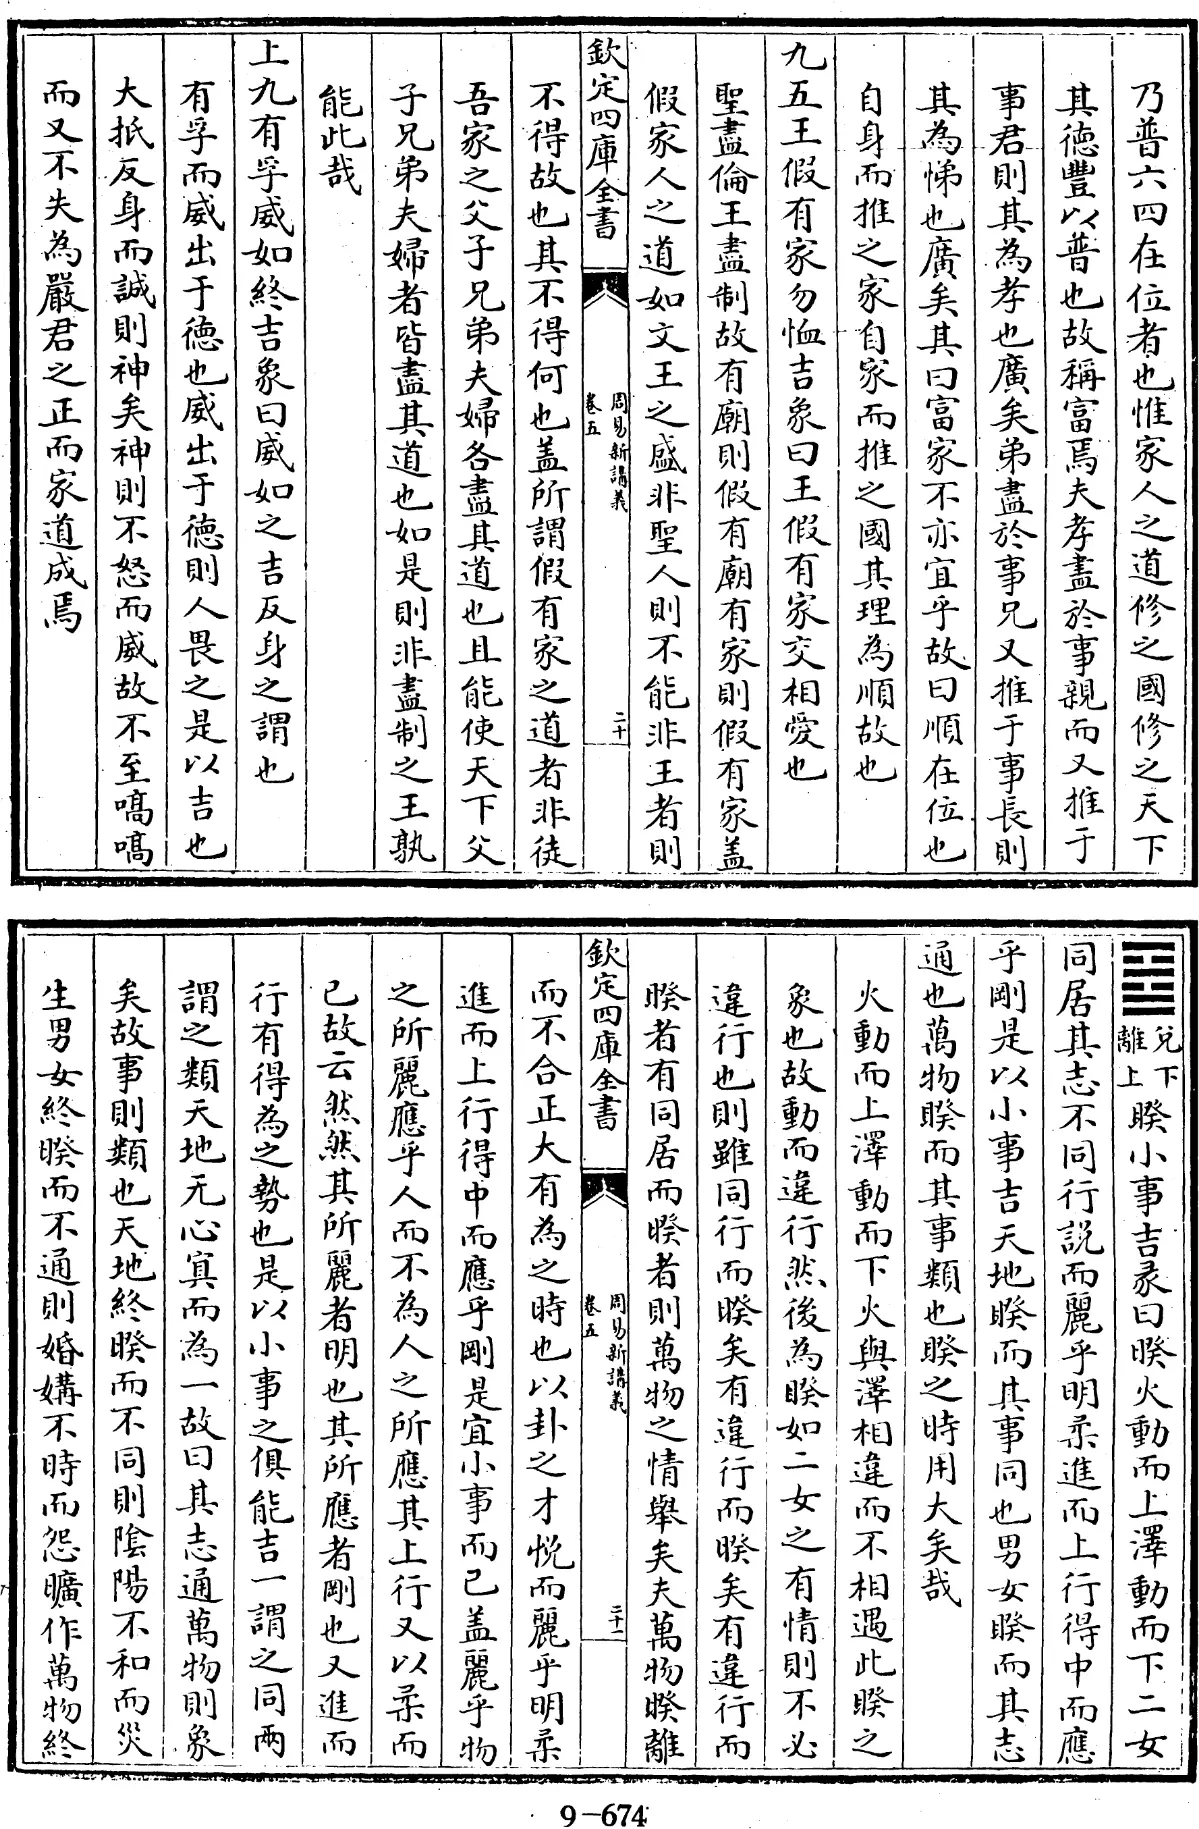 乃普六四在位者也惟家人之道修之國修之天下
其徳豐以普也故稱富焉夫孝盡於事親而又推于
事君則其為孝也廣矣弟盡於事兄又推于事長則
其為悌也廣矣其曰富家不亦宜乎故曰順在位也
自身而推之家自家而推之國其理為順故也
九五王假有家勿恤吉象曰王假有家交相愛也
聖盡倫王盡制故有廟則假有廟有家則假有家盖
假家人之道如文王之盛非聖人則不能非王者則
欽定四庫全書
周易新講義
卷五
二十
不得故也其不得何也盖所謂假有家之道者非徒
吾家之父子兄弟夫婦各盡其道也且能使天下父
子兄弟夫婦者皆盡其道也如是則非盡制之王孰
能此哉
上九有孚威如終吉象曰威如之吉反身之謂也
有孚而威出于徳也威出于徳則人畏之是以吉也
大抵反身而誠則神矣神則不怒而威故不至嗃嗃
而又不失為嚴君之正而家道成焉
䷥兌下離上睽小事吉彖曰睽火動而上澤動而下二女
同居其志不同行説而麗乎明柔進而上行得中而應
乎剛是以小事吉天地睽而其事同也男女睽而其志
通也萬物睽而其事類也睽之時用大矣哉
火動而上澤動而下火與澤相違而不相遇此睽之
象也故動而違行然後為睽如二女之有情則不必
違行也則雖同行而睽矣有違行而睽矣有違行而
睽者有同居而睽者則萬物之情舉矣夫萬物睽離
欽定四庫全書
周易新講義
卷五
二十一
而不合正大有為之時也以卦之才悦而麗乎明柔
進而上行得中而應乎剛是宜小事而已盖麗乎物
之所麗應乎人而不為人之所應其上行又以柔而
已故云然然其所麗者明也其所應者剛也又進而
行有得為之勢也是以小事之俱能吉一謂之同兩
謂之類天地无心寘而為一故曰其志通萬物則象
矣故事則類也天地終睽而不同則陰陽不和而災
生男女終睽而不通則婚媾不時而怨曠作萬物終
9-674